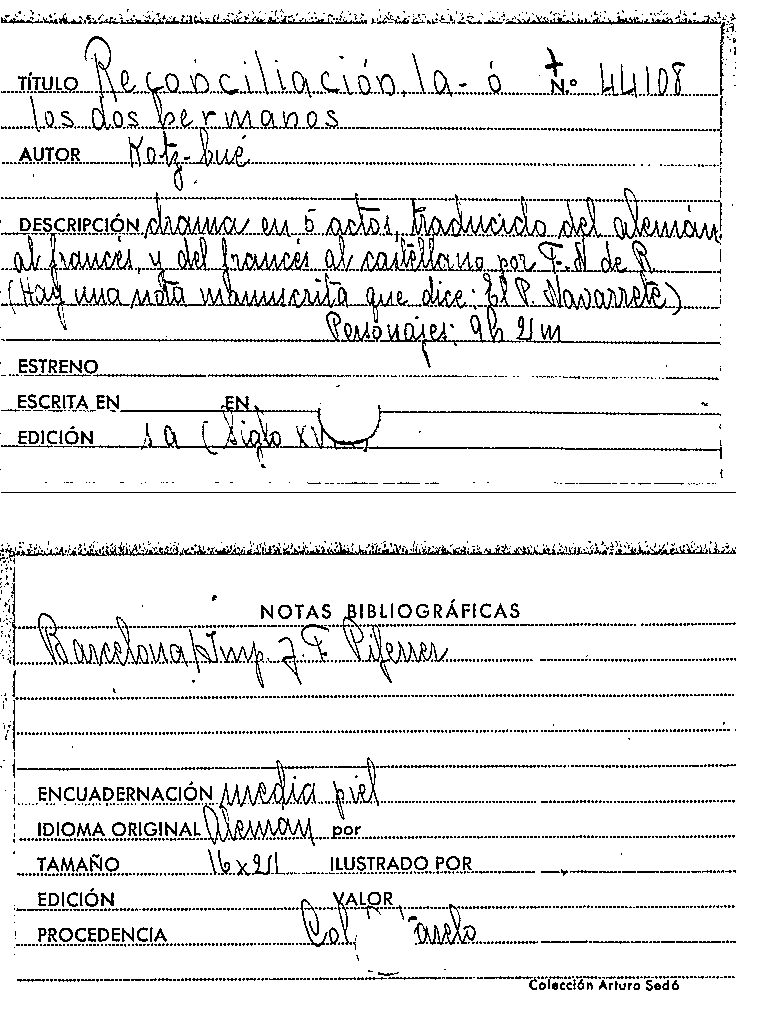 TÍTULO Reconciliación, la - ó Nº 44108
los dos hermanos
AUTOR Kotz-bué
DESCRIPCIÓN drama en 5 actos, traducido del alemán
al francés, y del francés al castellano por F. N. de R.
(Hay una nota manuscrita que dice: El P. Navarrete)
Personajes: 9h 2m
ESTRENO
ESCRITA EN EN
EDICIÓN s a (Siglo
NOTAS BIBLIOGRÁFICAS
Barcelona/Imp. J. F. Piferrer
ENCUADERNACIÓN media piel
IDIOMA ORIGINAL Aleman por
TAMAÑO 16x21 ILUSTRADO POR
EDICIÓN VALOR
PROCEDENCIA Col.
Colección Arturo Sedó